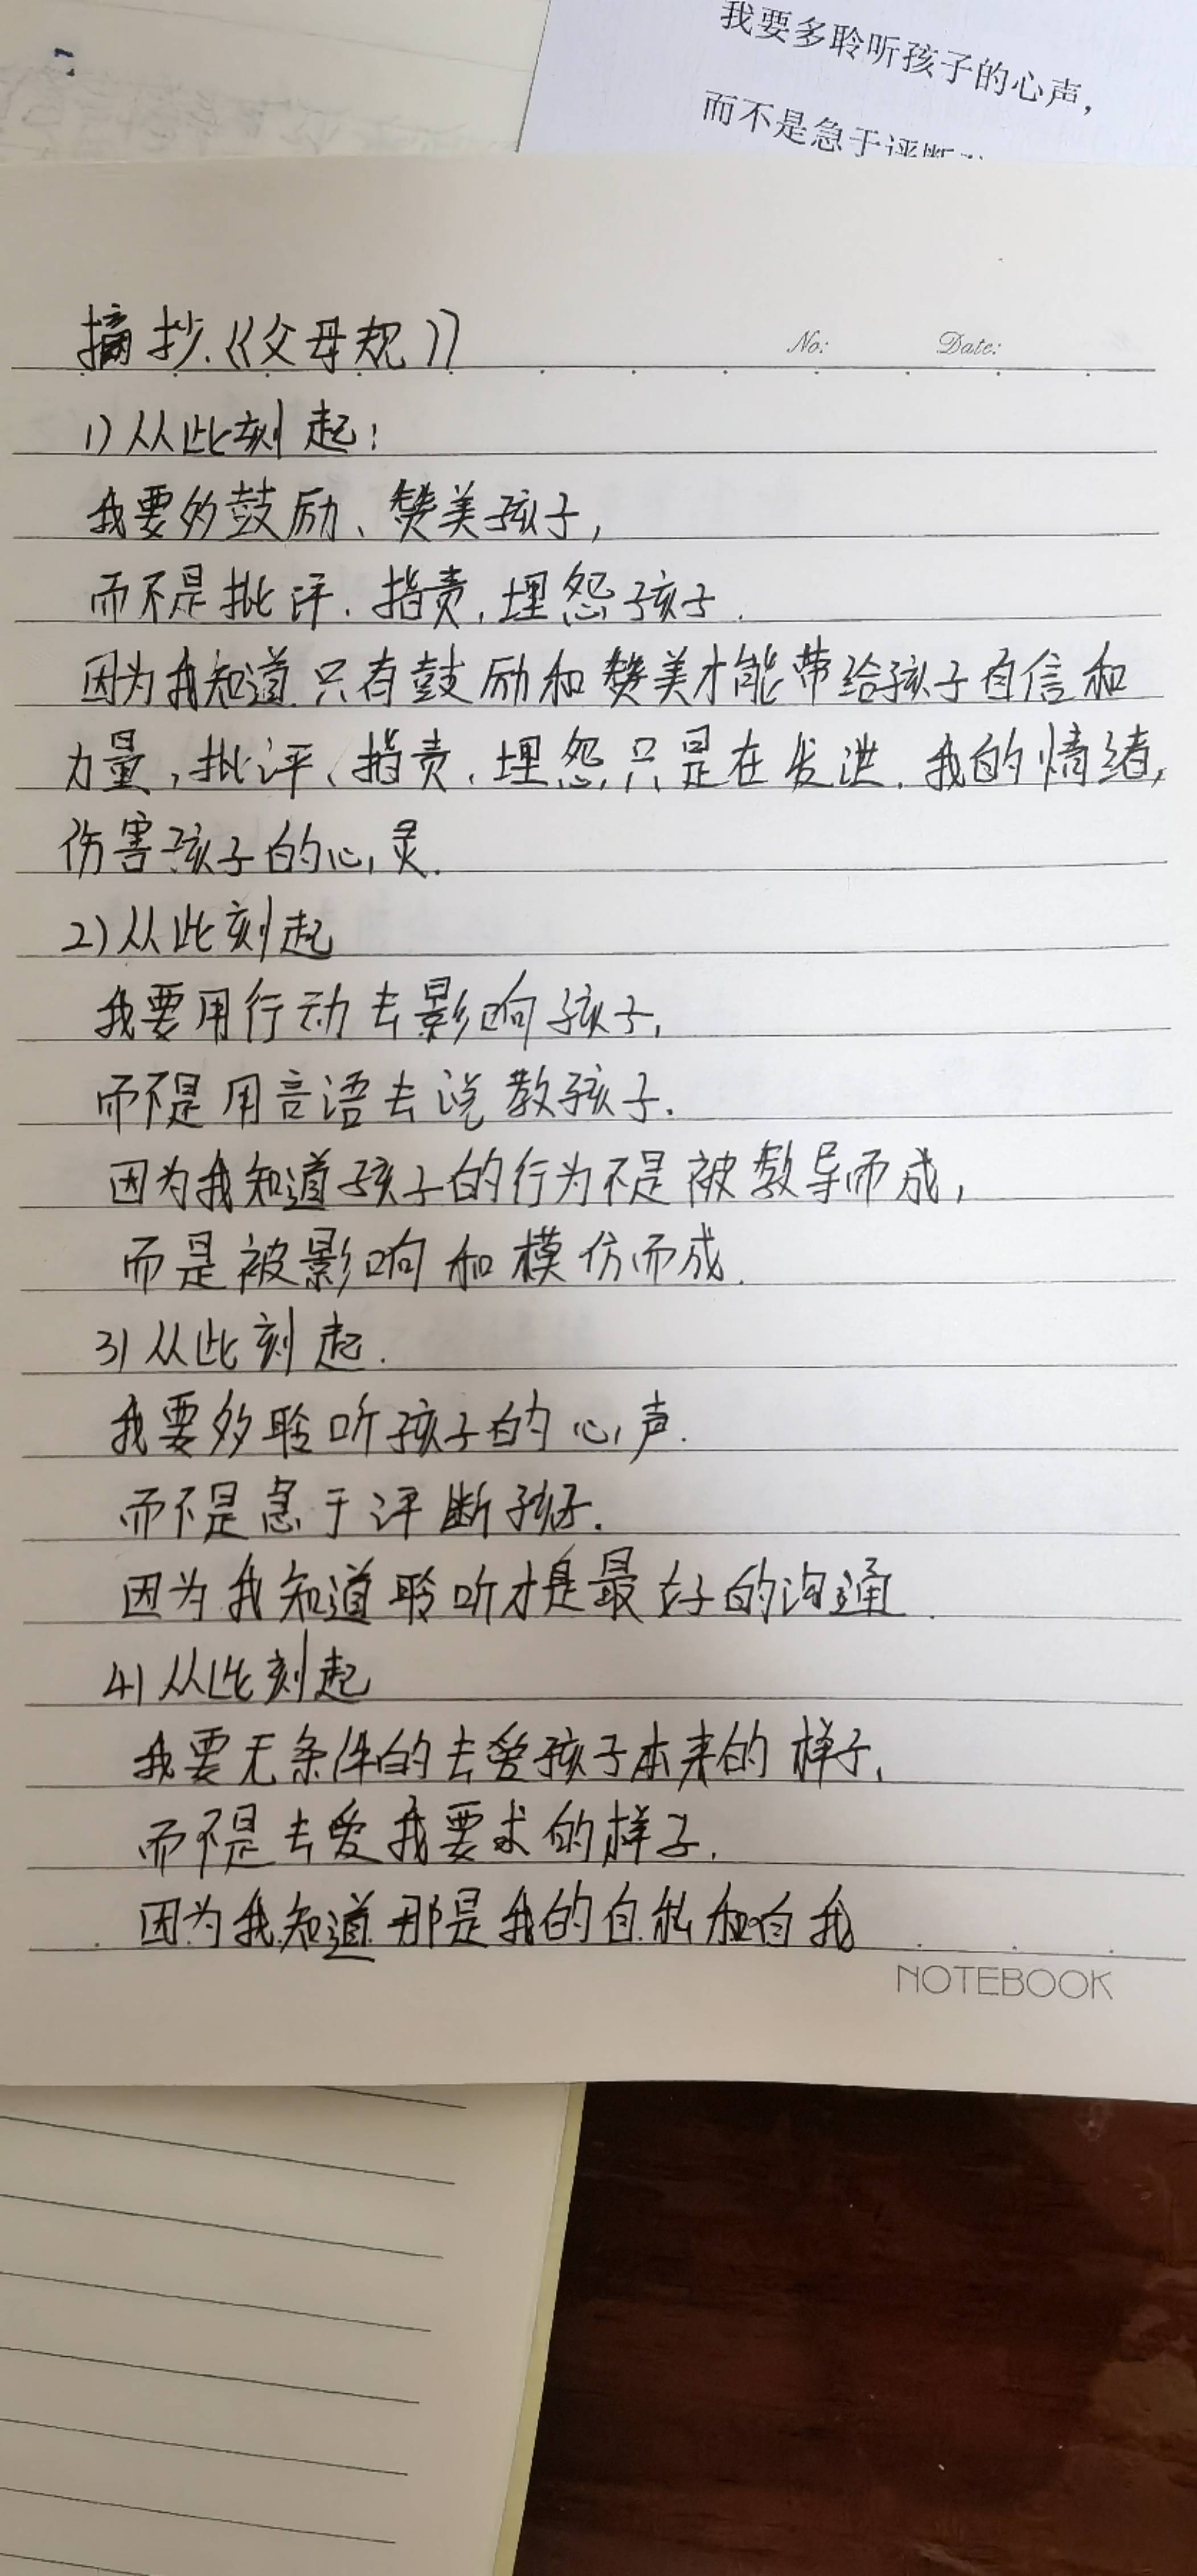 我要多聆听孩子的心声，
而不是急于评断
摘抄《父母规》
No: Date:
1）从此刻起：
我要多鼓励、赞美孩子，
而不是批评、指责、埋怨孩子.
因为我知道只有鼓励和赞美才能带给孩子自信和
力量，批评、指责、埋怨只是在发泄我的情绪，
伤害孩子的心灵.
2）从此刻起
我要用行动去影响孩子，
而不是用言语去说教孩子.
因为我知道孩子的行为不是被教导而成，
而是被影响和模仿而成.
3）从此刻起.
我要多聆听孩子的心声.
而不是急于评断孩子.
因为我知道聆听才是最好的沟通.
4）从此刻起
我要无条件的去爱孩子本来的样子，
而不是去爱我要求的样子.
因为我知道那是我的自私和自我
NOTEBOOK